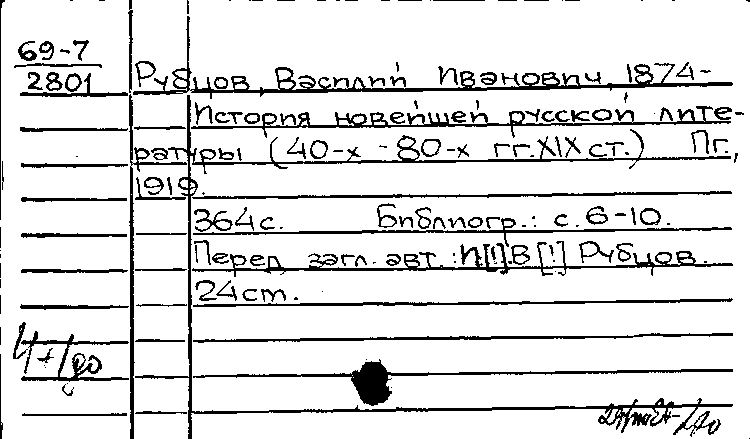 69-7
2801
Рубцов, Василий Иванович, 1874-
История новейшей русской лите-
ратуры (40-х - 80-х гг. XIX ст.) Пг.,
1919.
364 с. Библиогр.: с. 6-10.
Перед загл. авт.: И[!] В [!] Рубцов.
24 cm.